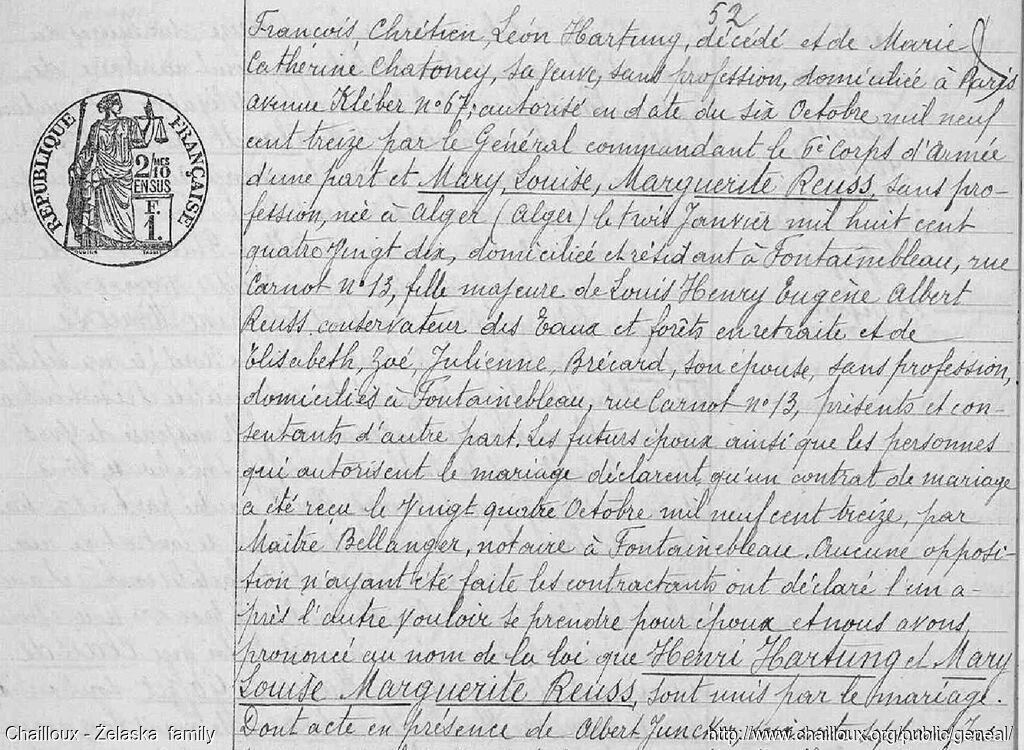 52
François Chrétien, Léon Hartung, décédé et de Marie
Catherine Chatoney, sa veuve, sans profession, domiciliée à Paris
avenue Kléber n° 67, autorisé en date du six Octobre mil neuf
cent treize par le Général commandant le 6e Corps d'Armée
d'une part et Mary, Louise, Marguerite Reuss, sans pro-
fession, née à Alger (Alger) le trois Janvier mil huit cent
quatre vingt dix, domiciliée et résidant à Fontainebleau, rue
Carnot n° 13, fille majeure de Louis Henry Eugène Albert
Reuss conservateur des Eaux et forêts en retraite et de
Elisabeth, Zoé, Julienne, Brécard, son épouse, sans profession,
domiciliés à Fontainebleau, rue Carnot n° 13, présents et con-
sentants d'autre part. Les futurs époux ainsi que les personnes
qui autorisent le mariage déclarent qu'un contrat de mariage
a été reçu le Vingt quatre Octobre mil neuf cent treize, par
Maitre Bellanger, notaire à Fontainebleau. Aucune opposi-
tion n'ayant été faite les contractants ont déclaré l'un a-
près l'autre Vouloir se prendre pour époux et nous avons
prononcé au nom de la loi que Henri Hartung et Mary
Louise Marguerite Reuss, sont unis par le mariage.
Dont acte en présence de Albert
RÉPUBLIQUE FRANÇAISE
2/10 MES
EN SUS
F.
1.
Chailloux - Żelaska family
http://www.chailloux.org/public/geneal/